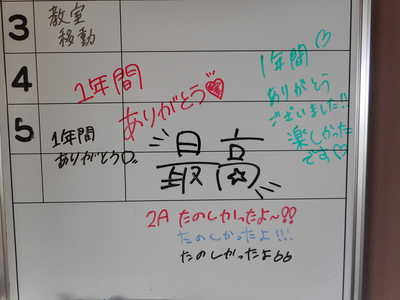 3
教室
移動
4
1年間
ありがとう♡
1年間♡
ありがとう
ございました!!
楽しかった
です♡
5
1年間
ありがとう♡。
最高
2A たのしかったよ〜!!
たのしかったよ!!!
たのしかったよ